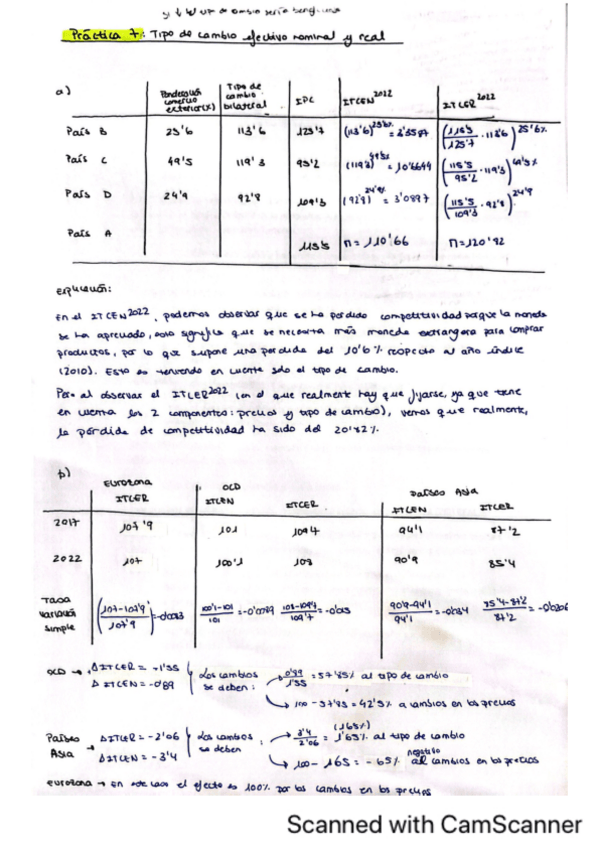 Práctica 7: Tipo de cambio efectivo nominal y real
a)
Ponderación comercio exterior(x) Tipo de cambio bilateral IPC ITCEN 2022 ITCER 2022
País B 25'6 113'6 125'7 (113'6)^25'6% = 3'3587 (115'5/125'7 · 113'6)^25'6%
País C 49'5 119'3 95'2 (119'3)^49'5% = 10'6644 (115'5/95'2 · 119'3)^49'5%
País D 24'9 92'8 109'3 (92'8)^24'9% = 3'0897 (115'5/109'3 · 92'8)^24'9
País A 115'5 Π=110'66 Π=120'82
explicación:
En el ITCEN 2022, podemos observar que se ha perdido competitividad porque la moneda
se ha apreciado, esto significa que se necesita más moneda extranjera para comprar
productos, por lo que supone una perdida del 10'6% respecto al año índice
(2010). Esto es teniendo en cuenta solo el tipo de cambio.
Pero al observar el ITCER 2022 (en el que realmente hay que fijarse, ya que tiene
en cuenta los 2 componentes: precios y tipo de cambio), vemos que realmente,
la pérdida de competitividad ha sido del 20'82%.
b)
Eurozona OCD Países Asia
ITCER ITCEN ITCER ITCEN ITCER
2017 107'9 101 109'4 94'1 87'2
2022 107 100'1 108 90'9 85'4
Tasa variación simple (107-107'9/107'9)=-0'0083 100'1-101/101=-0'0089 108-109'4/109'4=-0'013 90'9-94'1/94'1=-0'034 85'4-87'2/87'2=-0'0206
OCD → ΔITCER = -1'55 Los cambios → 0'89/1'55 = 57'85% al tipo de cambio
ΔITCEN = -0'89 se deben: → 100 - 57'85 = 42'5% a cambios en los precios
Países Asia → ΔITCER = -2'06 Los cambios → 3'4/2'06 = 1'65% (165%) al tipo de cambio
ΔITCEN = -3'4 se deben: → 100 - 165 = -65% negativo al cambios en los precios
eurozona → en este caso el efecto es 100% por los cambios en los precios
Scanned with CamScanner